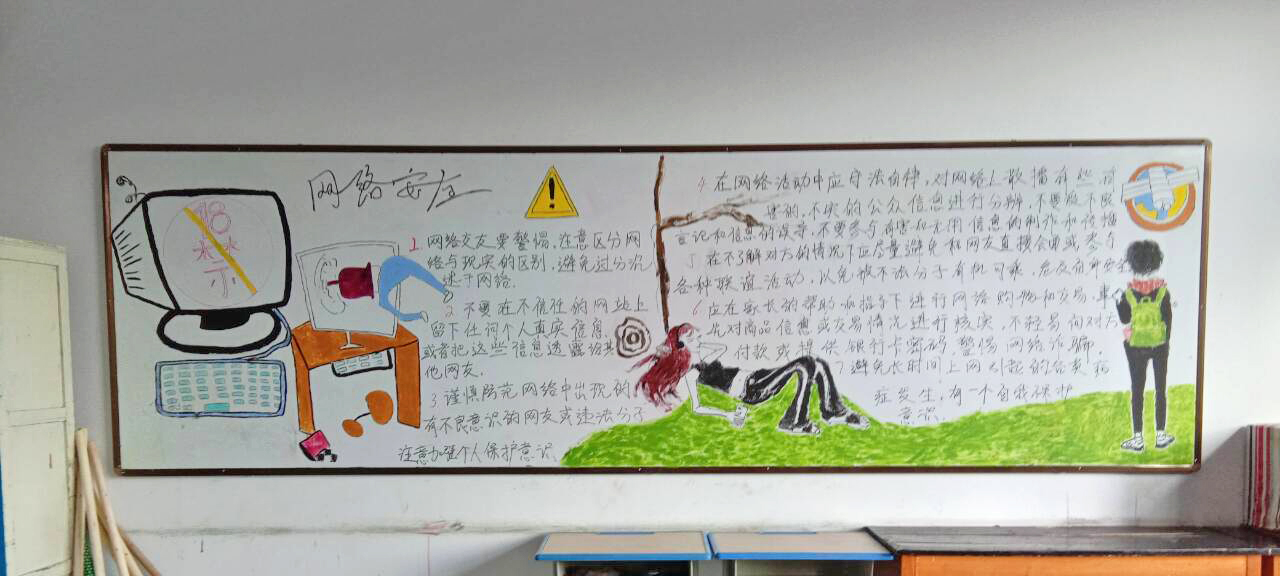 网络安全
18
禁
示
1. 网络交友要警惕,注意区分网
络与现实的区别,避免过分沉
迷于网络.
2. 不要在不信任的网站上
留下任何个人真实信息
或者把这些信息透露给其
他网友.
3 谨慎防范网络中出现的
有不良意识的网友或违法分子
注意加强个人保护意识
4. 在网络活动中应守法自律,对网络上散播有些有
害的,不实的公众信息进行分辨,不要被不良
言论和信息的误导,不要参与有害和无用信息的制作和传播
5 在不了解对方的情况下应尽量避免和网友直接会面或参与
各种联谊活动,以免被不法分子有机可乘,危及自身安全
6. 应在家长的帮助和指导下进行网络购物和交易,事
先对商品信息或交易情况进行核实,不轻易向对方
付款或提供银行卡密码,警惕网络诈骗.
7 避免长时间上网引起的各类病
症发生,有一个自我保护
意识